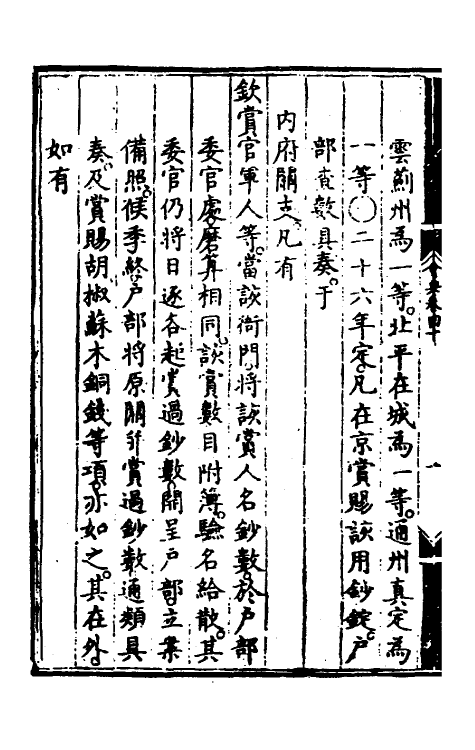 雲薊州為一等。北平在城為一等。通州真定為
一等〇二十六年定。凡在京賞賜該用鈔錠。户
部查數具奏。于
内府關支。凡有
欽賞官軍人等。當該衙門。將該賞人名鈔數。於户部
委官處磨算相同。該賞數目附簿。驗名給散。其
委官仍將日逐各起賞過鈔數。開呈户部立案
備照。候季終。户部將原關并賞過鈔數。通類具
奏。及賞賜胡椒蘇木銅錢等項。亦如之。其在外。
如有
會典卷四十
一